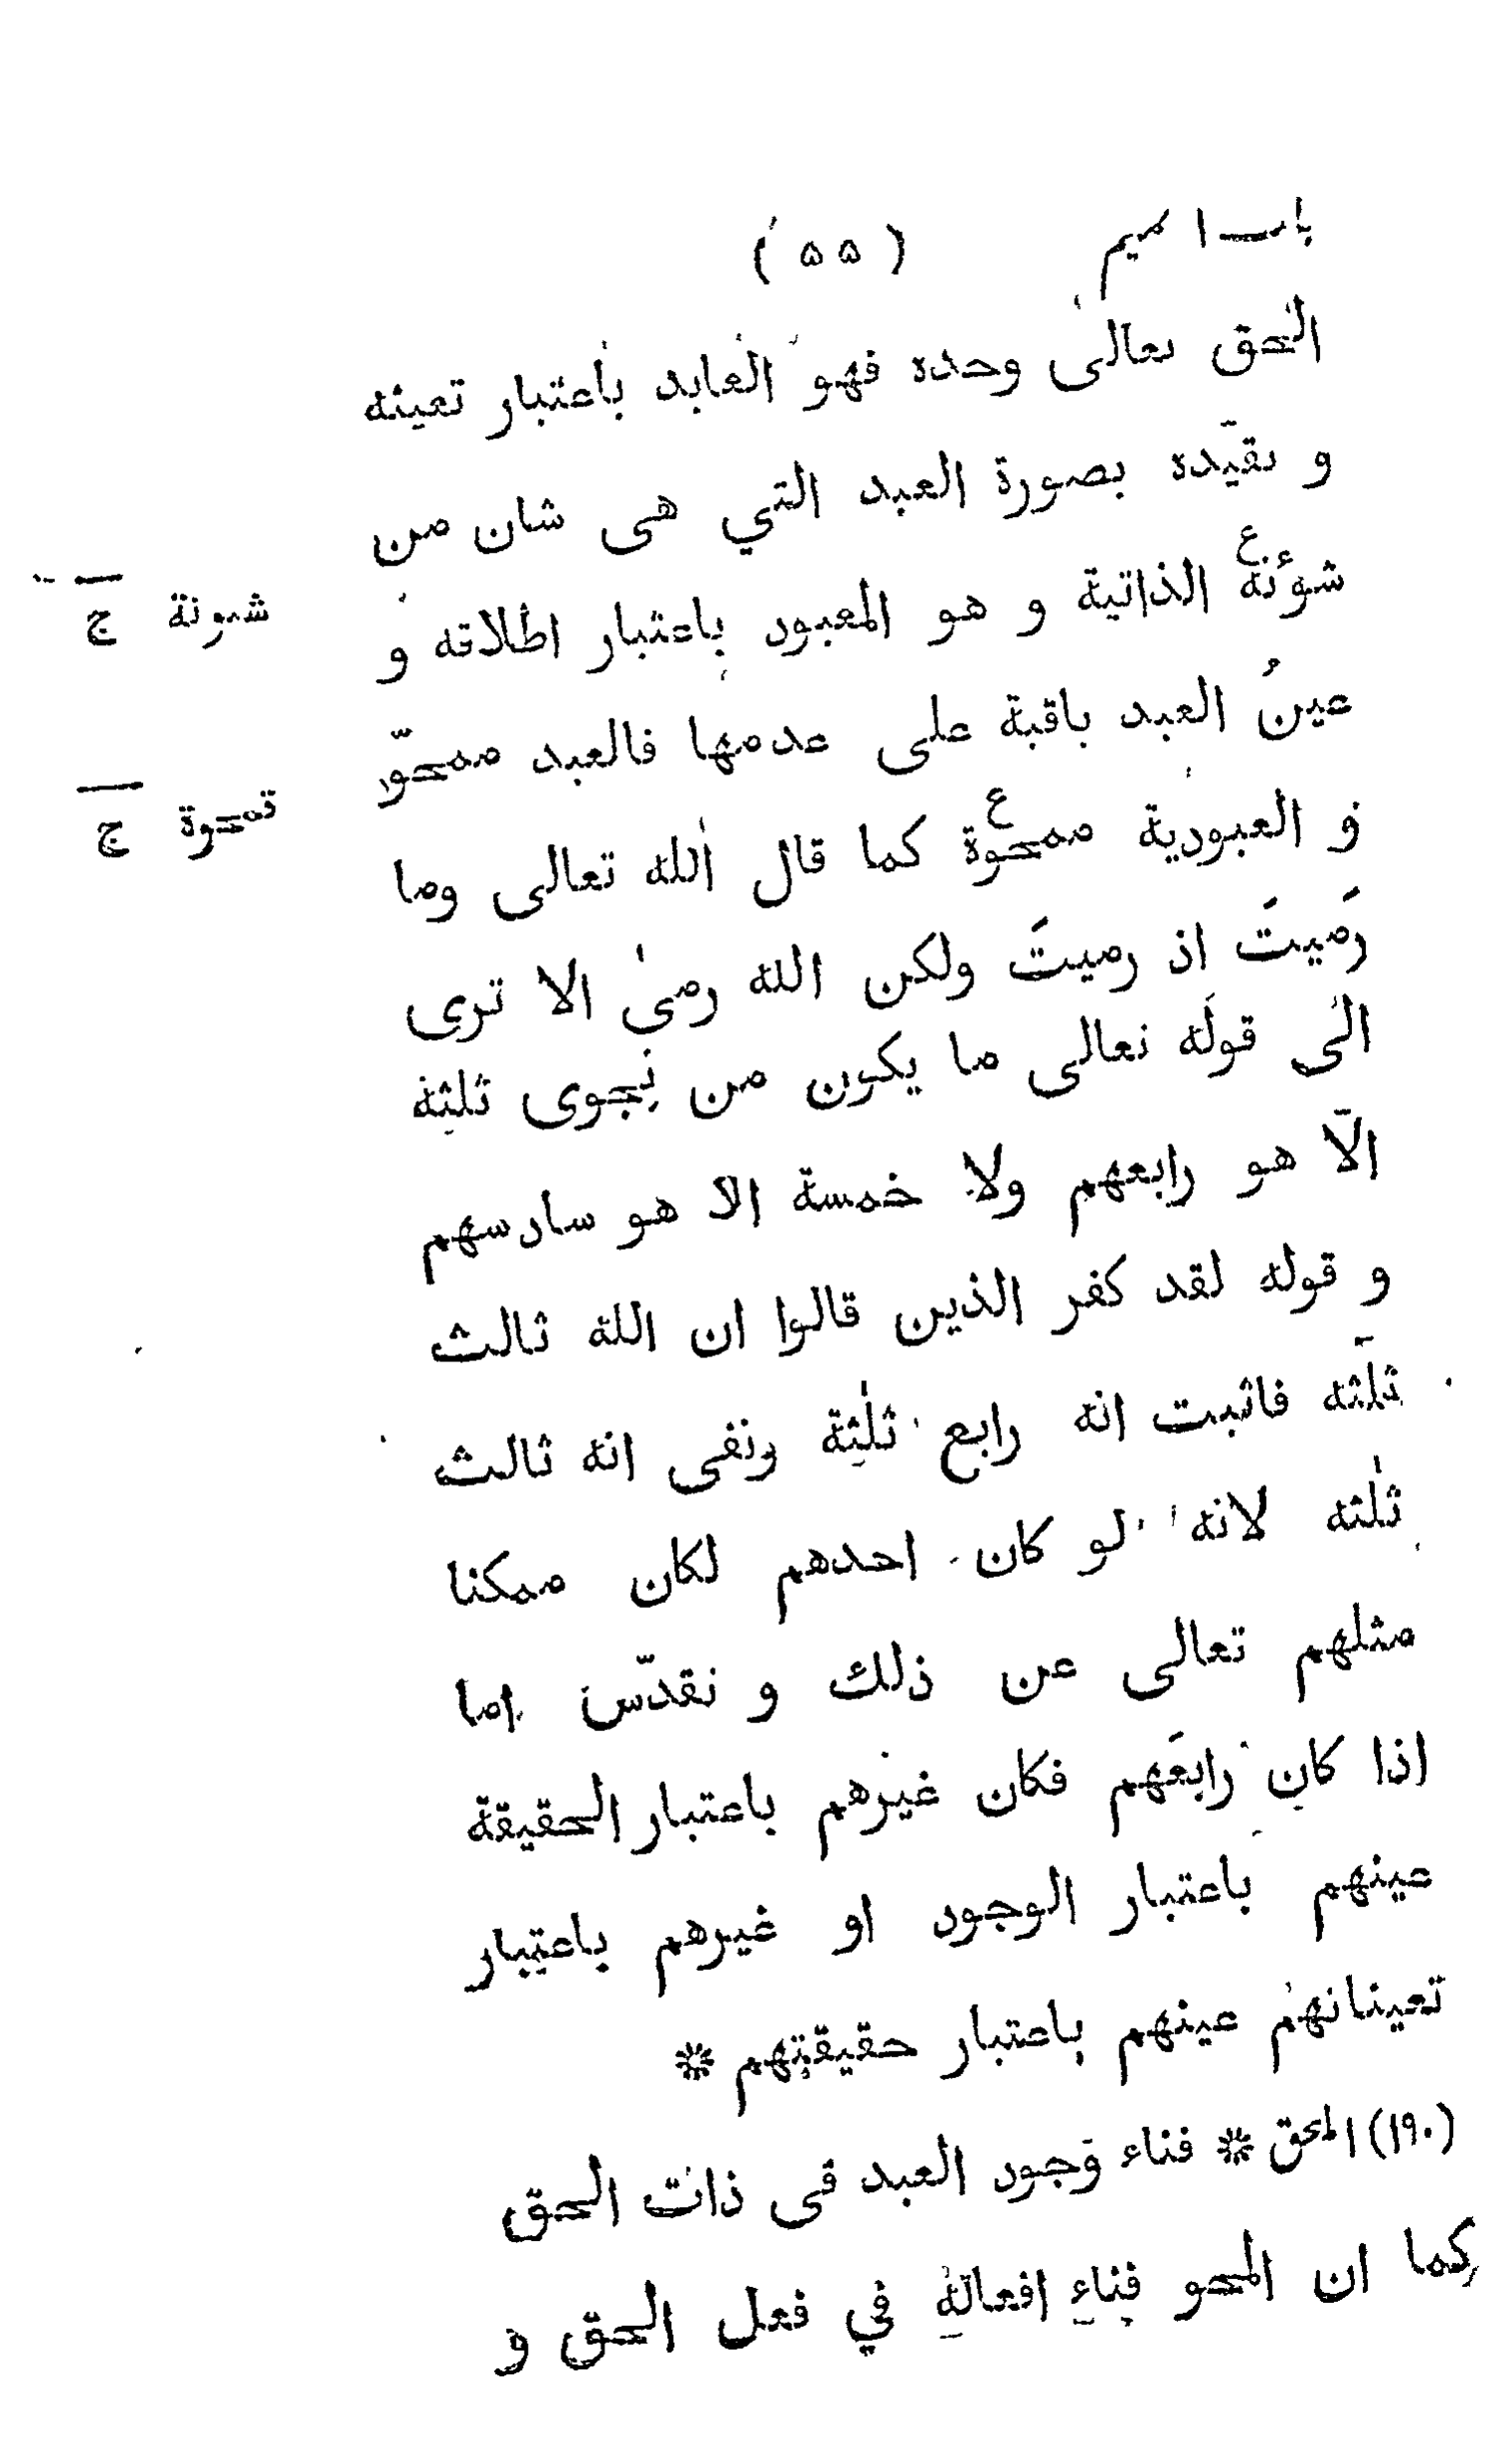 باب الميم (٥٥)
الحق تعالى وحده فهو العابد باعتبار تعينه
و تقيّده بصورة العبد التي هى شان من
شوئنهٔ الذاتية و هو المعبود باعتبار اطلاقه و
شىونة ج
عينُ العبد باقية على عدمها فالعبد ممحوّ
و العبودية ممحوة كما قال الله تعالى وما
تمحوة ج
رَميتَ اذ رميتَ ولكن الله رمىٰ الا ترى
الى قوله تعالى ما يكون من نجوى ثلثة
الّا هو رابعهم ولا خمسة الا هو سادسهم
و قوله لقد كفر الذين قالوا ان الله ثالث
ثلثه فاثبت انه رابع ثلٰثة ونفى انه ثالث
ثلٰثه لانه لو كان احدهم لكان ممكنا
مثلهم تعالى عن ذلك و تقدّس اما
اذا كان رابعَهم فكان غيرهم باعتبار الحقيقة
عينهم باعتبار الوجود او غيرهم باعتبار
تعيناتهم عينهم باعتبار حقيقتهم *
(١٩٠) المحق * فناء وجود العبد فى ذات الحق
كما ان المحو فناء افعاله في فعل الحق و